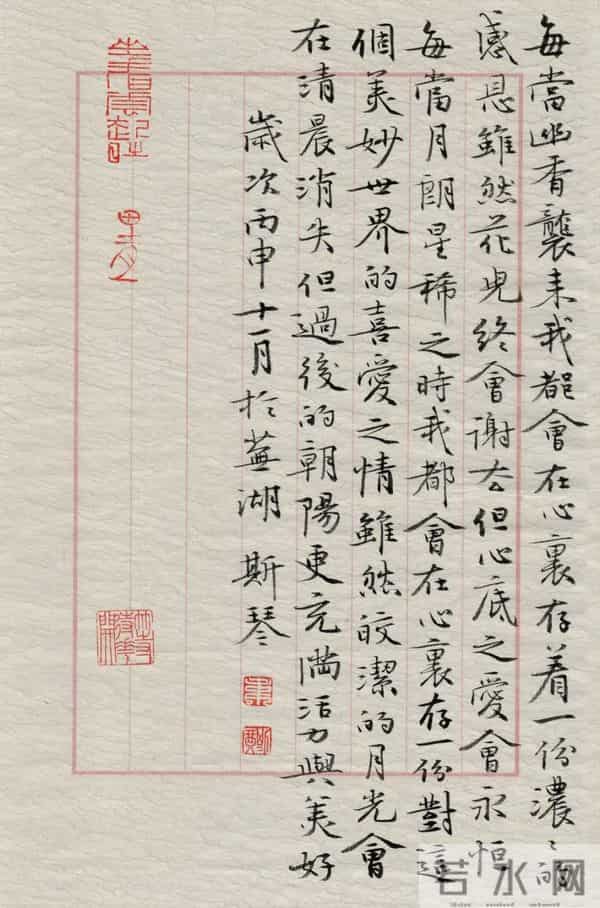 每當幽香襲来我都會在心裏存着一份濃〻的
感恩雖然花兒終會谢去但心底之愛會永恒
每當月朗星稀之時我都會在心裏存一份對這
個美妙世界的喜愛之情雖然皎潔的月光會
在清晨消失但過後的朝陽更充滿活力與美好
歲次丙申十一月於蕪湖 斯琴
若水网